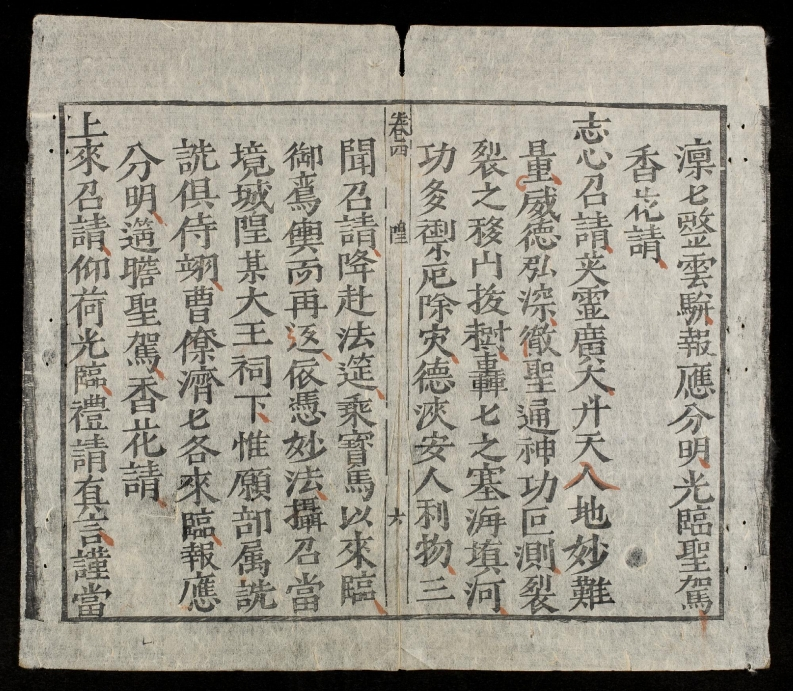 凛匕整雲駢報應分明光臨聖駕
香花請
志心召請英霊廣大升天入地妙難
量威德弘深徹聖通神功叵測裂
裂之移山拔樹轟匕之塞海填河
功多禦厄除灾德浹安人利物三
卷四
隍
六
聞召請降赴法筵乘寶馬以來臨
御鸞輿而再返依憑妙法攝召當
境城隍某大王祠下惟願部属詵
詵俱侍翊曹僚濟匕各來臨報應
分明遥瞻聖駕香花請
上來召請仰荷光臨禮請真言謹當